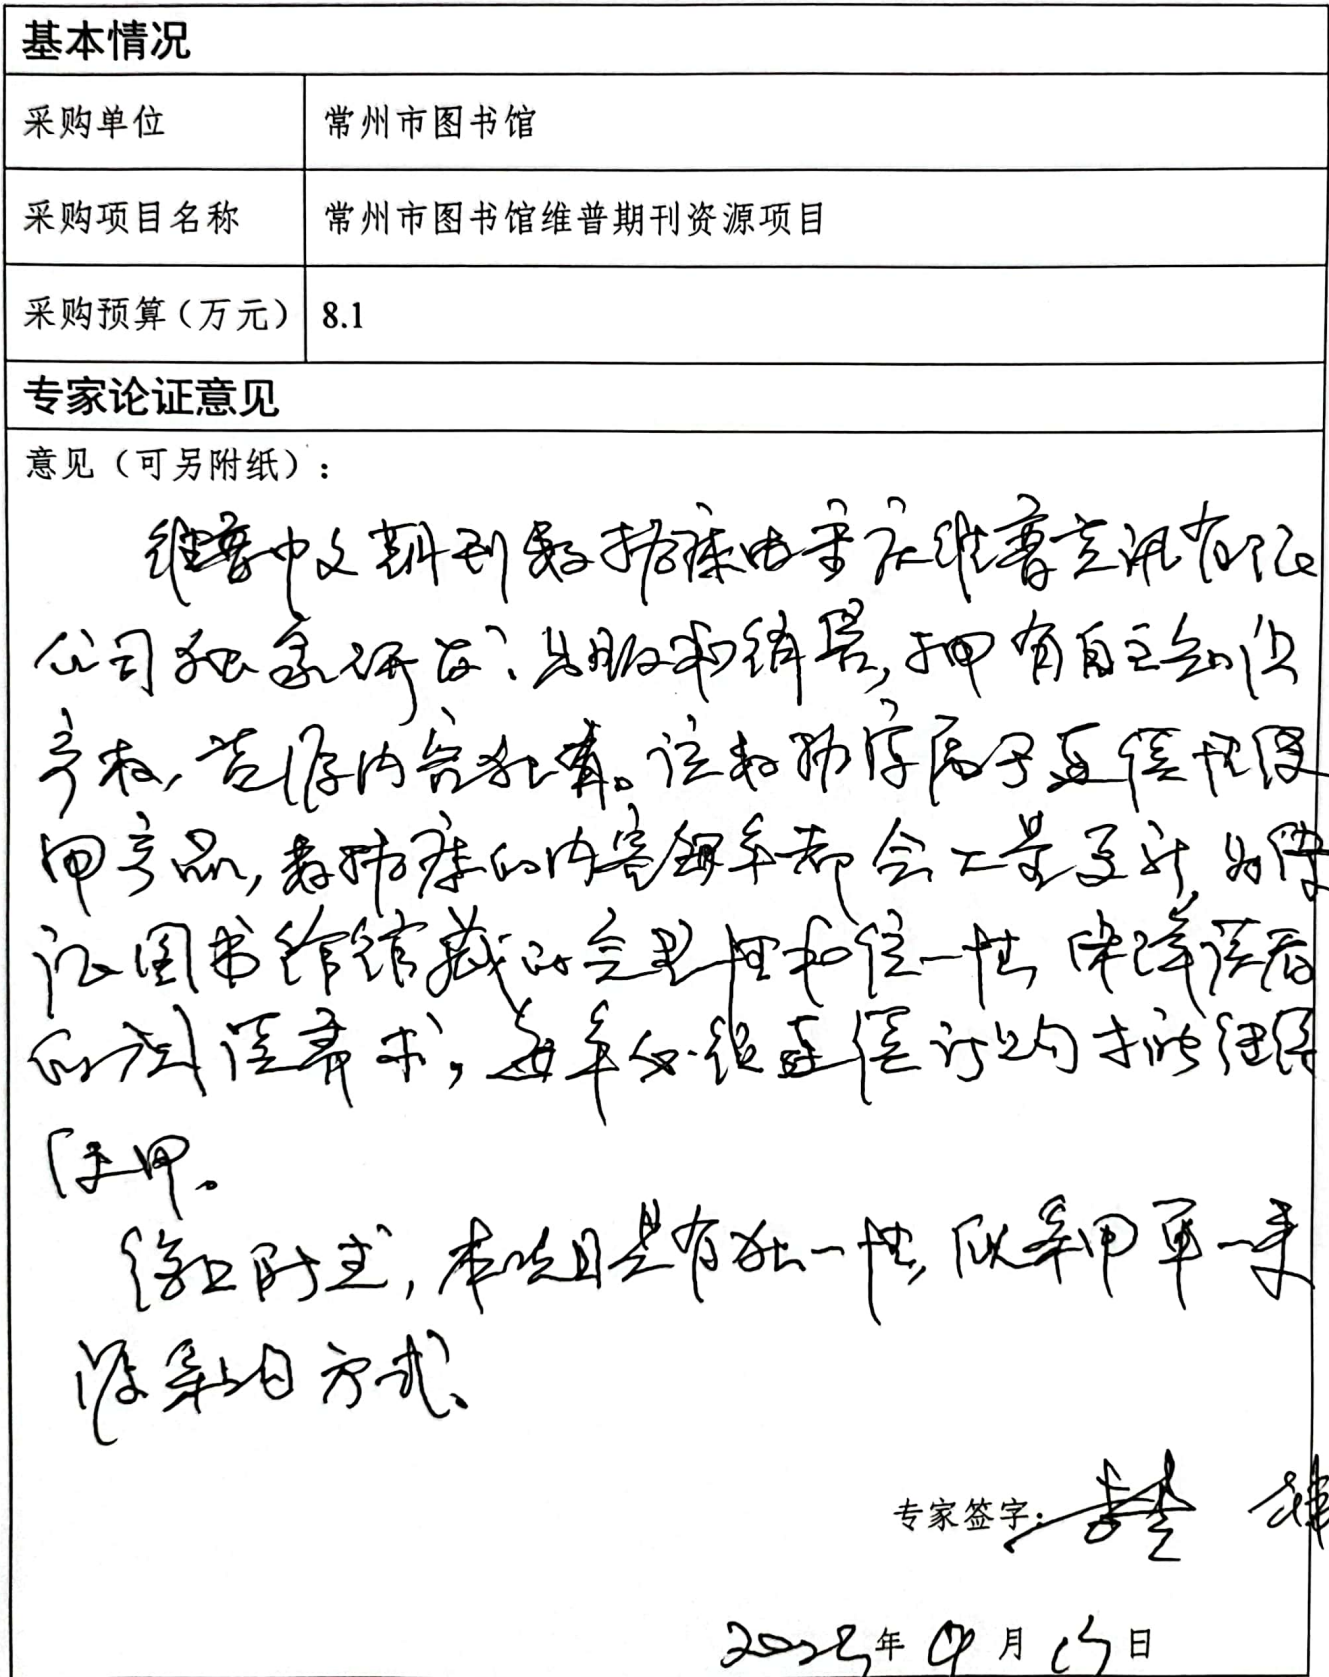 基本情况
采购单位 常州市图书馆
采购项目名称 常州市图书馆维普期刊资源项目
采购预算（万元） 8.1
专家论证意见
意见（可另附纸）：
维普中文期刊数据库由重庆维普资讯有限
公司独家研发、出版和销售，拥有自主知识
产权，资源内容独有。该数据库属于连续性使
用产品，数据库的内容每年都会大量更新，为保
证图书馆馆藏的完整性和统一性，保障读者
的阅读需求，每年必须连续订购才能继续
使用。
综上所述，本项目具有独一性，可采用单一来
源采购方式。
专家签字：
年 月 日